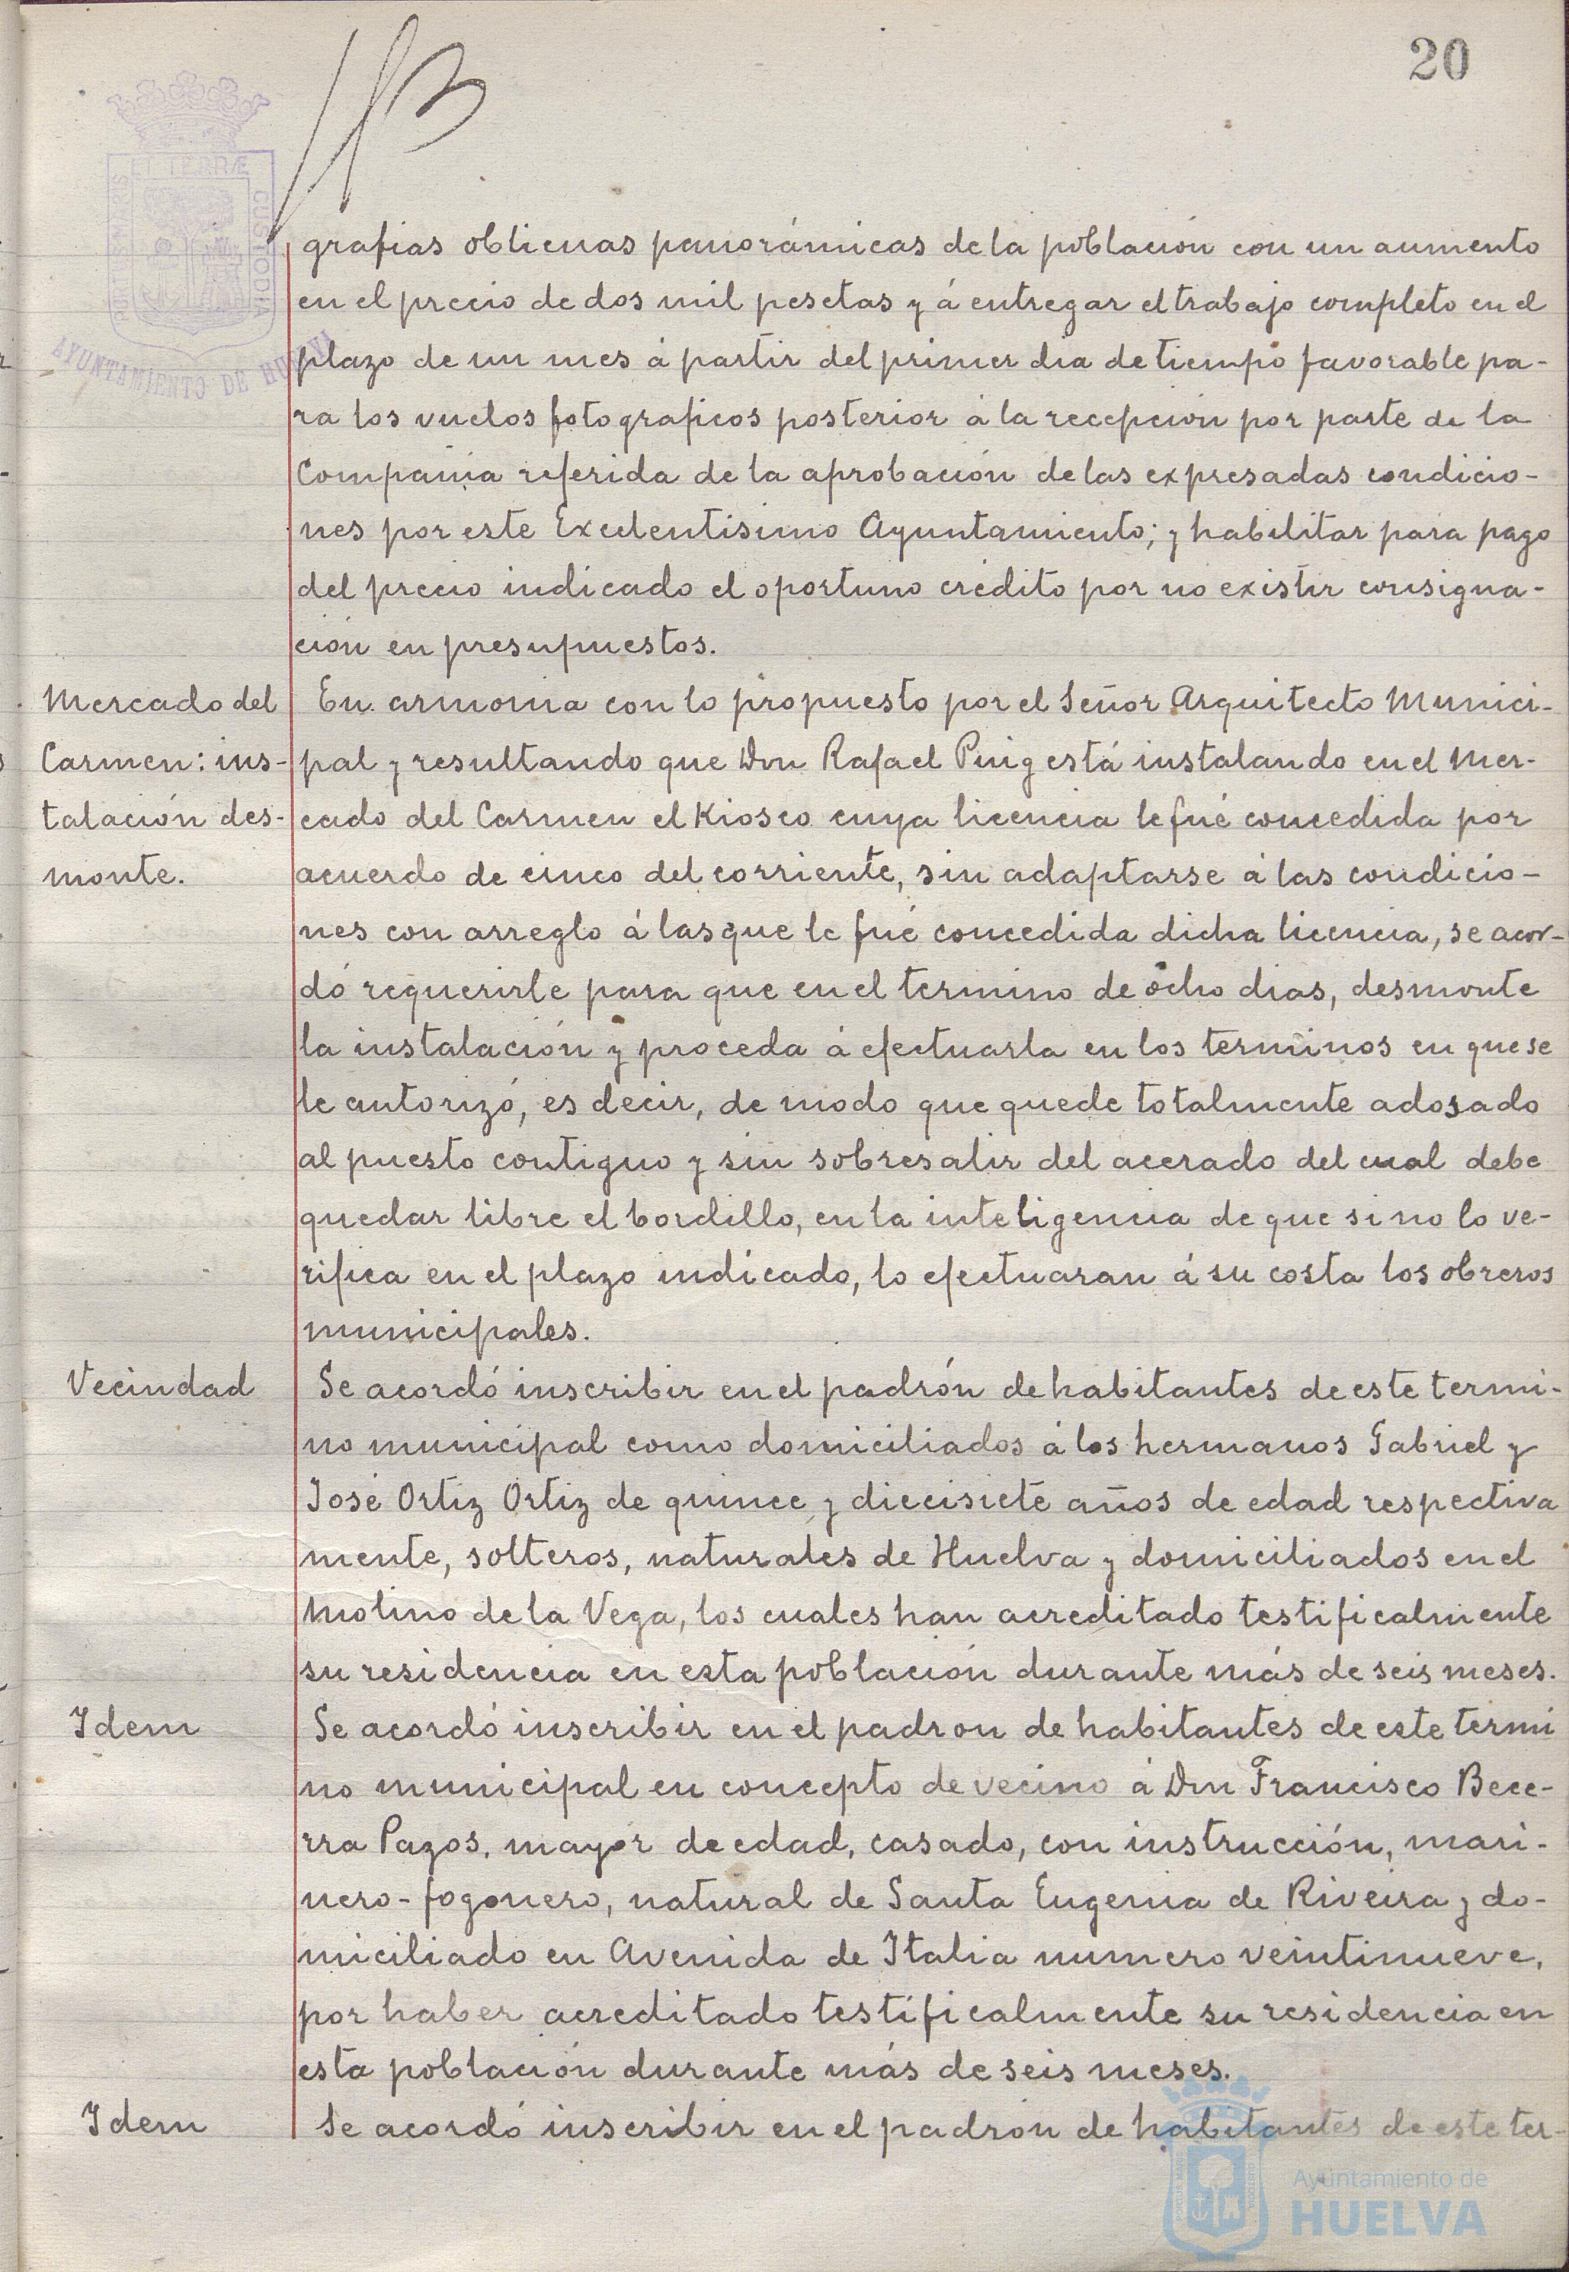 20
grafias oblicuas panorámicas de la población con un aumento
en el precio de dos mil pesetas y á entregar el trabajo completo en el
plazo de un mes á partir del primer dia de tiempo favorable pa-
ra los vuelos fotograficos posterior á la recepción por parte de la
Compañia referida de la aprobación de las expresadas condicio-
nes por este Excelentisimo Ayuntamiento; y habilitar para pago
del precio indicado el oportuno crédito por no existir consigna-
ción en presupuestos.
Mercado del
Carmen: ins-
talación des-
monte.
En armonia con lo propuesto por el Señor Arquitecto Munici-
pal y resultando que Don Rafael Puig está instalando en el Mer-
cado del Carmen el Kiosco cuya licencia le fué concedida por
acuerdo de cinco del corriente, sin adaptarse á las condicio-
nes con arreglo á las que le fué concedida dicha licencia, se acor-
dó requerirle para que en el termino de ocho dias, desmonte
la instalación y proceda á efectuarla en los terminos en que se
le autorizó, es decir, de modo que quede totalmente adosado
al puesto contiguo y sin sobresalir del acerado del cual debe
quedar libre el bordillo, en la inteligencia de que si no lo ve-
rifica en el plazo indicado, lo efectuaran á su costa los obreros
municipales.
Vecindad
Se acordó inscribir en el padrón de habitantes de este termi-
no municipal como domiciliados á los hermanos Gabriel y
José Ortiz Ortiz de quince y diecisiete años de edad respectiva
mente, solteros, naturales de Huelva y domiciliados en el
Molino de la Vega, los cuales han acreditado testificalmente
su residencia en esta población durante más de seis meses.
Idem
Se acordó inscribir en el padron de habitantes de este termi
no municipal en concepto de vecino á Don Francisco Bece-
rra Pazos, mayor de edad, casado, con instrucción, mari-
nero-fogonero, natural de Santa Eugenia de Riveira y do-
miciliado en Avenida de Italia numero veintinueve,
por haber acreditado testificalmente su residencia en
esta población durante más de seis meses.
Idem
Se acordó inscribir en el padrón de habitantes de este ter-
AYUNTAMIENTO DE
Ayuntamiento de
HUELVA